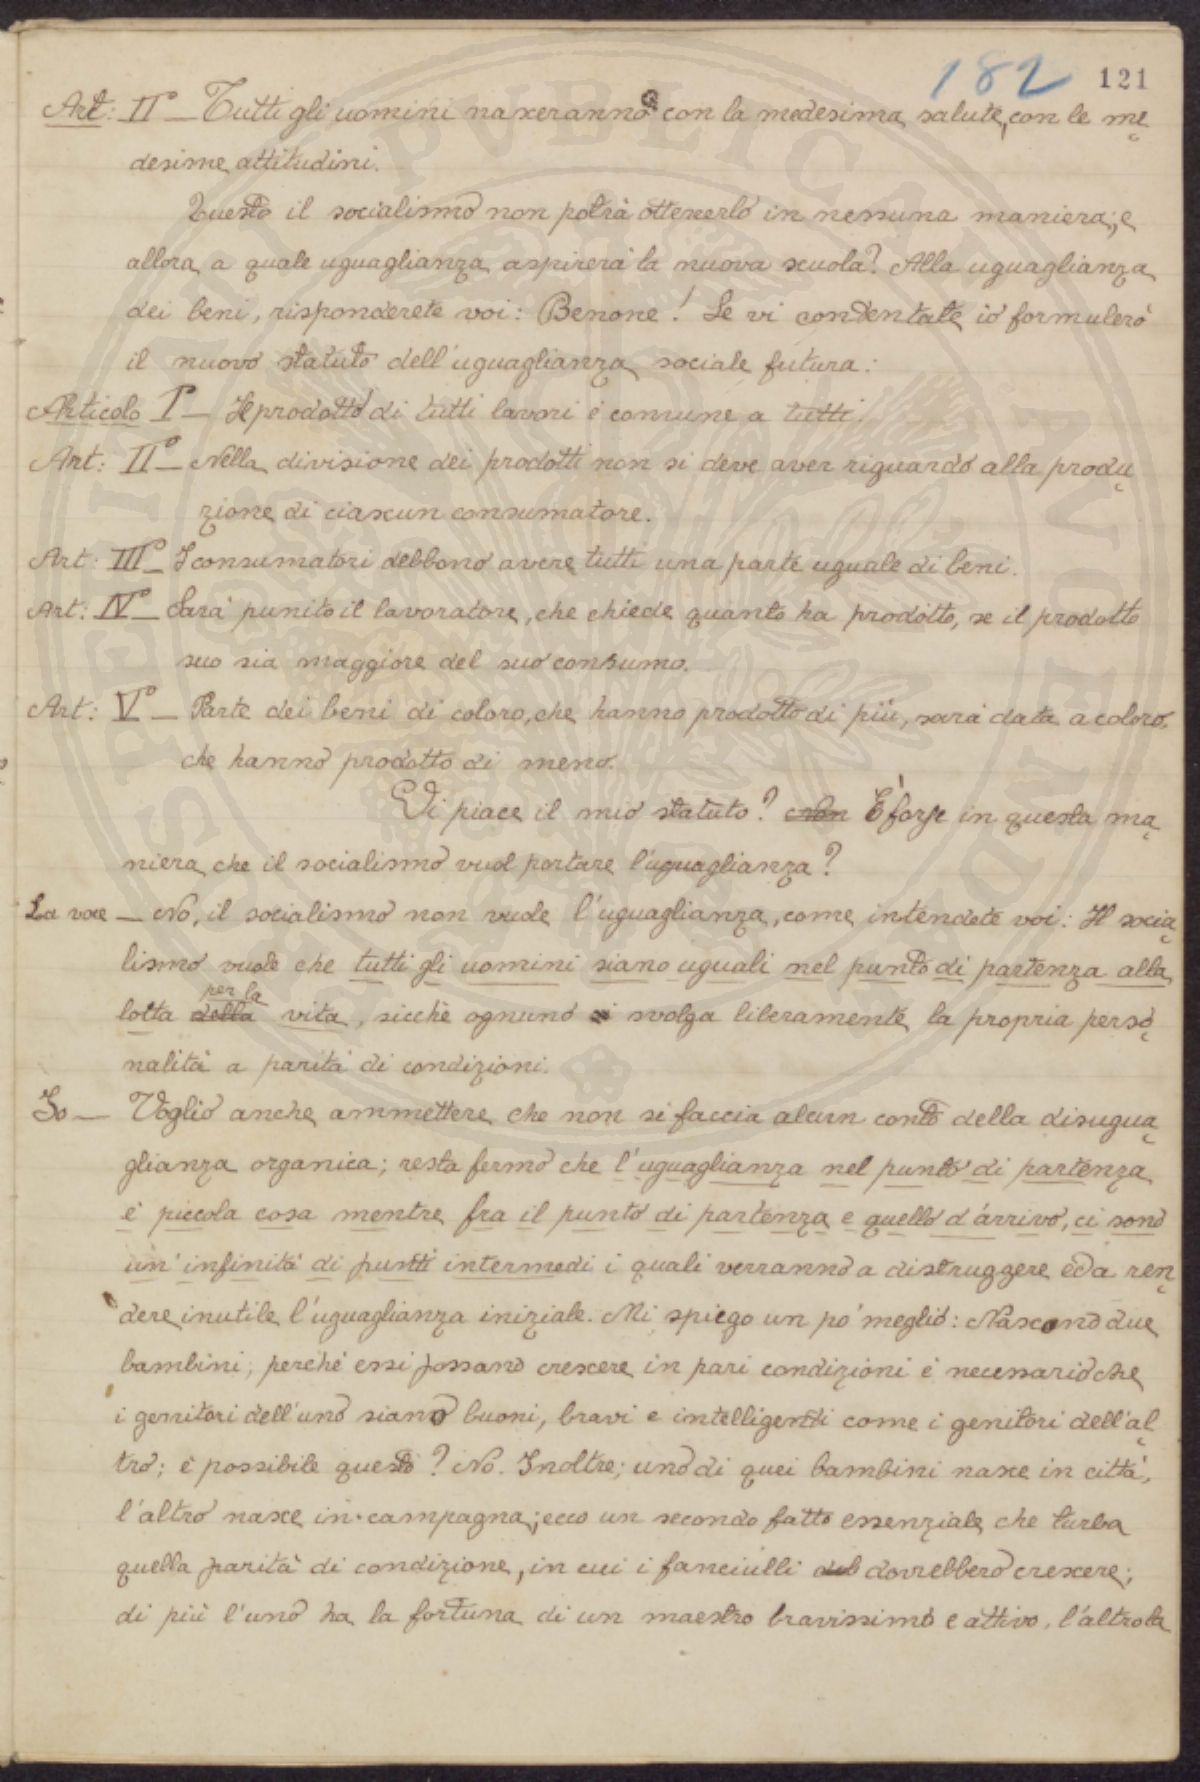 182 121
Art: II° — Tutti gli uomini nasceranno con la medesima salute, con le me
desime attitudini.
Questo il socialismo non potrà ottenerlo in nessuna maniera; e
allora a quale uguaglianza aspirerà la nuova scuola? Alla uguaglianza
dei beni, risponderete voi: Benone! Se vi contentate io formulerò
il nuovo statuto dell'uguaglianza sociale futura:
Articolo I° — Il prodotto di tutti lavori è comune a tutti.
Art: II° — Nella divisione dei prodotti non si deve aver riguardo alla produ
zione di ciascun consumatore.
Art: III° — I consumatori debbono avere tutti una parte uguale di beni.
Art: IV° — Sarà punito il lavoratore, che chiede quanto ha prodotto, se il prodotto
suo sia maggiore del suo consumo.
Art: V° — Parte dei beni di coloro, che hanno prodotto di più, sarà data a coloro,
che hanno prodotto di meno.
Vi piace il mio statuto? È forse in questa ma
niera che il socialismo vuol portare l'uguaglianza?
La voce — No, il socialismo non vuole l'uguaglianza, come intendete voi: Il socia
lismo vuole che tutti gli uomini siano uguali nel punto di partenza alla
per la
lotta della vita, sicchè ognuno svolga liberamente la propria perso
nalità a parità di condizioni.
Io — Voglio anche ammettere che non si faccia alcun conto della disugua
glianza organica; resta fermo che l'uguaglianza nel punto di partenza
è piccola cosa mentre fra il punto di partenza e quello d'arrivo, ci sono
un'infinità di punti intermedi i quali verranno a distruggere ed a ren
dere inutile l'uguaglianza iniziale. Mi spiego un po' meglio: Nascono due
bambini; perchè essi possano crescere in pari condizioni è necessario che
i genitori dell'uno siano buoni, bravi e intelligenti come i genitori dell'al
tro; è possibile questo? No. Inoltre; uno di quei bambini nasce in città,
l'altro nasce in campagna; ecco un secondo fatto essenziale che turba
quella parità di condizione, in cui i fanciulli dovrebbero crescere;
di più l'uno ha la fortuna di un maestro bravissimo e attivo, l'altro la